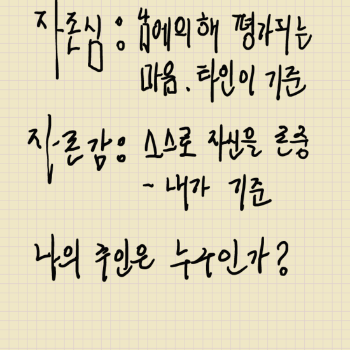 자존심 : 남에의해 평가되는
마음. 타인이 기준
자존감 : 스스로 자신을 존중
~ 내가 기준
나의 주인은 누구인가?